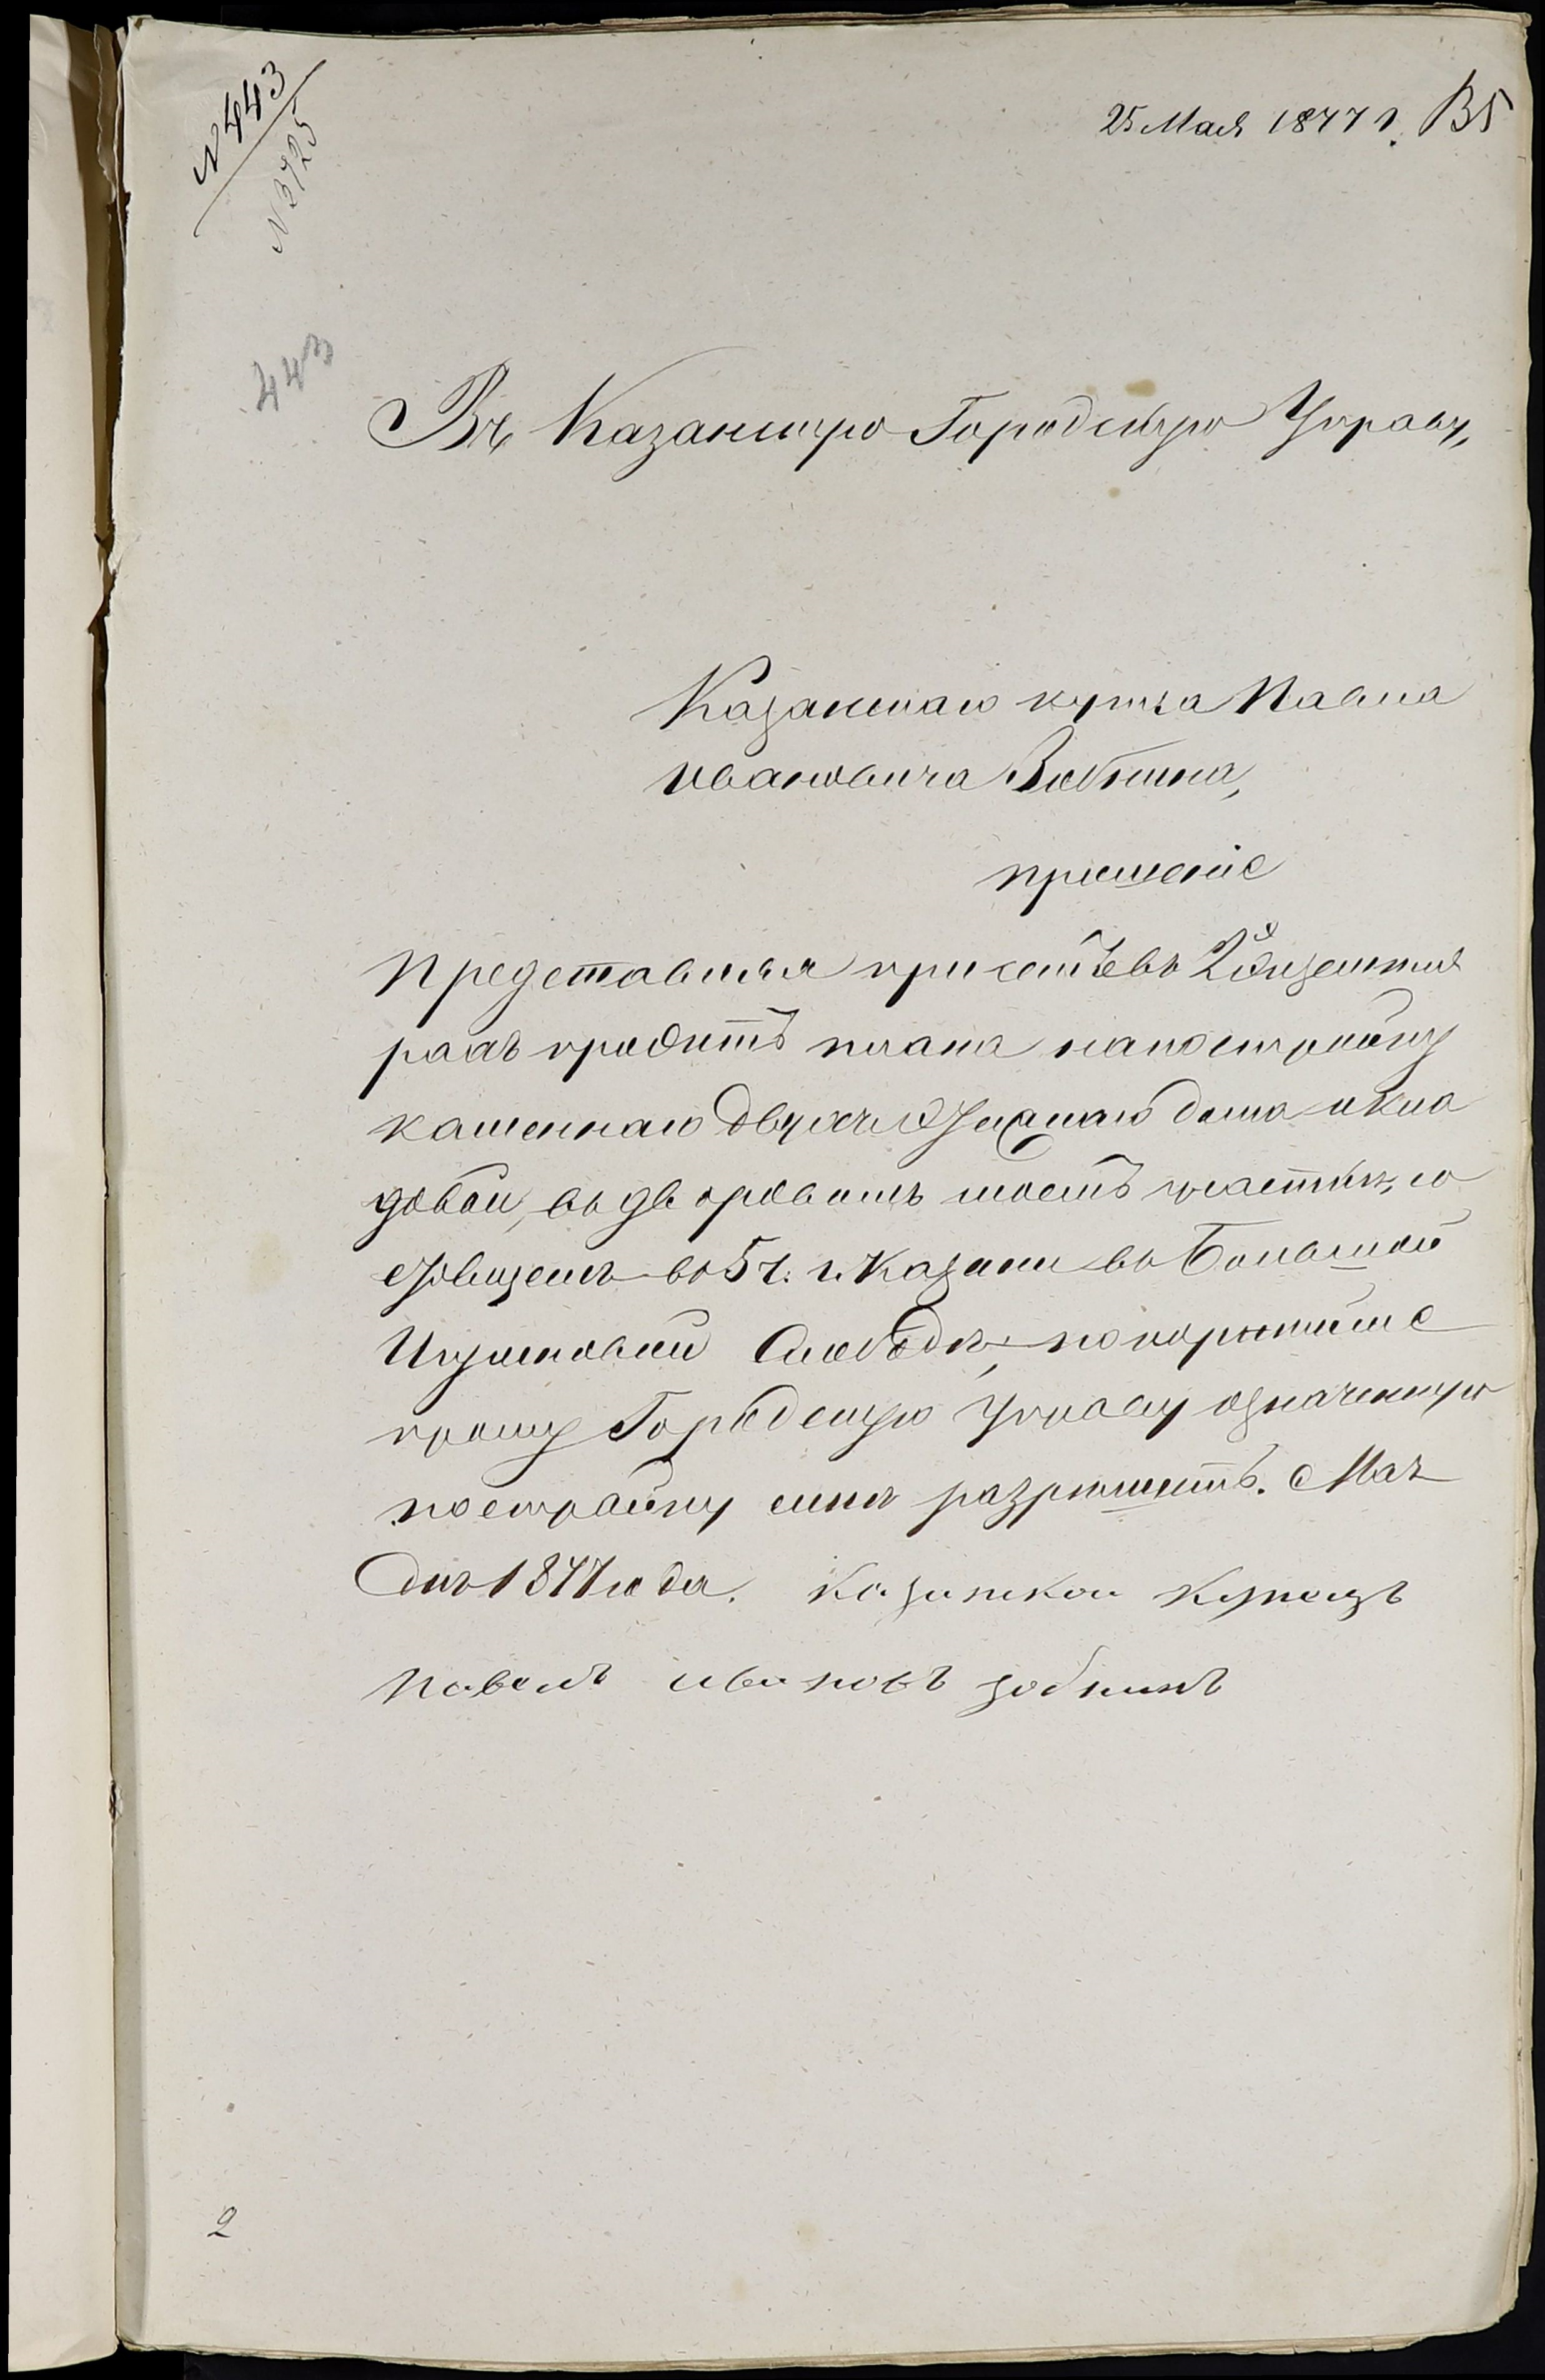 № 443
№ 3725
25 Мая 1877 г. В5
443
Въ Казанскую Городскую Управу,
Казанскаго купца Павла
Ивановича Зобнина,
прошеніе
Представляя при семъ въ 2хъ экземпля
рахъ проэктъ плана на постройку
каменнаго двухъ этажнаго дома и кла
довой, въ дворовомъ моемъ участкѣ, со
стоящемъ въ 5 ч. г. Казани въ Большой
Игумновой Слободѣ, покорнѣйше
прошу Городскую Управу означенную
постройку мнѣ разрѣшить. Мая
дня 1877 года. Казанской Купецъ
Павелъ Ивановъ Зобнинъ
2